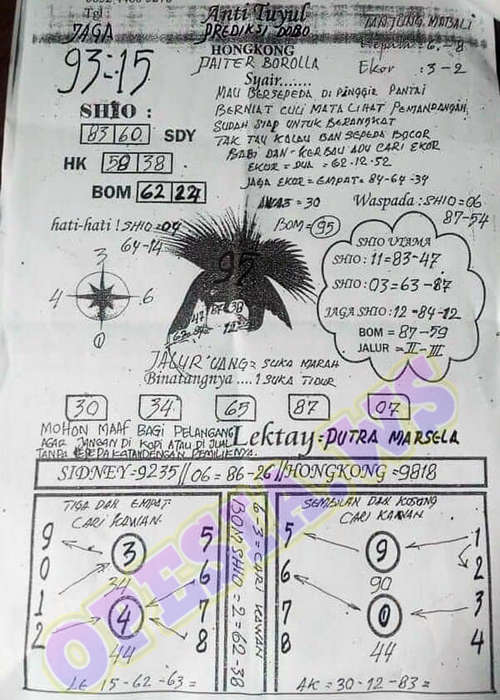 Tgl :
Anti Tuyul
TANJUNG MABALI
JAGA
PREDIKSI DOBO
HONGKONG
Kepala = 6 - 8
93-15
PAITER BOROLLA
Ekor : 3 - 2
Syair.......
MAU BERSEPEDA DI PINGGIR PANTAI
SHIO :
BERNIAT CULI MATA LIHAT PEMANDANGAN
83 60 SDY
SUDAH SIAP UNTUK BERANGKAT
TAK TAU KALAU BAN SEPEDA BOCOR
HK 58 38
BABI DAN - KERBAU ADU CARI EKOR
EKOR = DUA = 62-12-52
BOM 62 22
JAGA EKOR = EMPAT = 84-64-34
AWAS = 30
Waspada : SHIO = 06
87-54
hati-hati ! SHIO = 04
64-14
BOM = 95
SHIO UTAMA
SHIO : 11 = 83-47
SHIO : 03 = 63-87
JAGA SHIO : 12 = 84-12
BOM = 87-59
JALUR = II - III
3
4 6
0
95
JALUR UANG = SUKA MARAH
Binatangnya .... 1 SUKA TIDUR
30 34 65 87 07
MOHON MAAF BAGI PELANGANG
AGAR JANGAN DI KOPI ATAU DI JUAL
TANPA KATANDENGAN PEMILIKNYA.
Lektay = PUTRA MARSELA
SIDNEY = 9235 // 06 = 86-26 // HONGKONG = 9818
TIGA DAN EMPAT
CARI KAWAN
9 3 5
0 34 6
1 4 7
2 44 8
15-62-63 =
BOM SHIO = 2 = 62-38
6-3 = CARI KAWAN
SEMBILAN DAN KOSONG
CARI KAWAN
5 9 1
6 90 2
7 0 3
8 44 4
AK = 30-12-83 =
OPESIA.WS